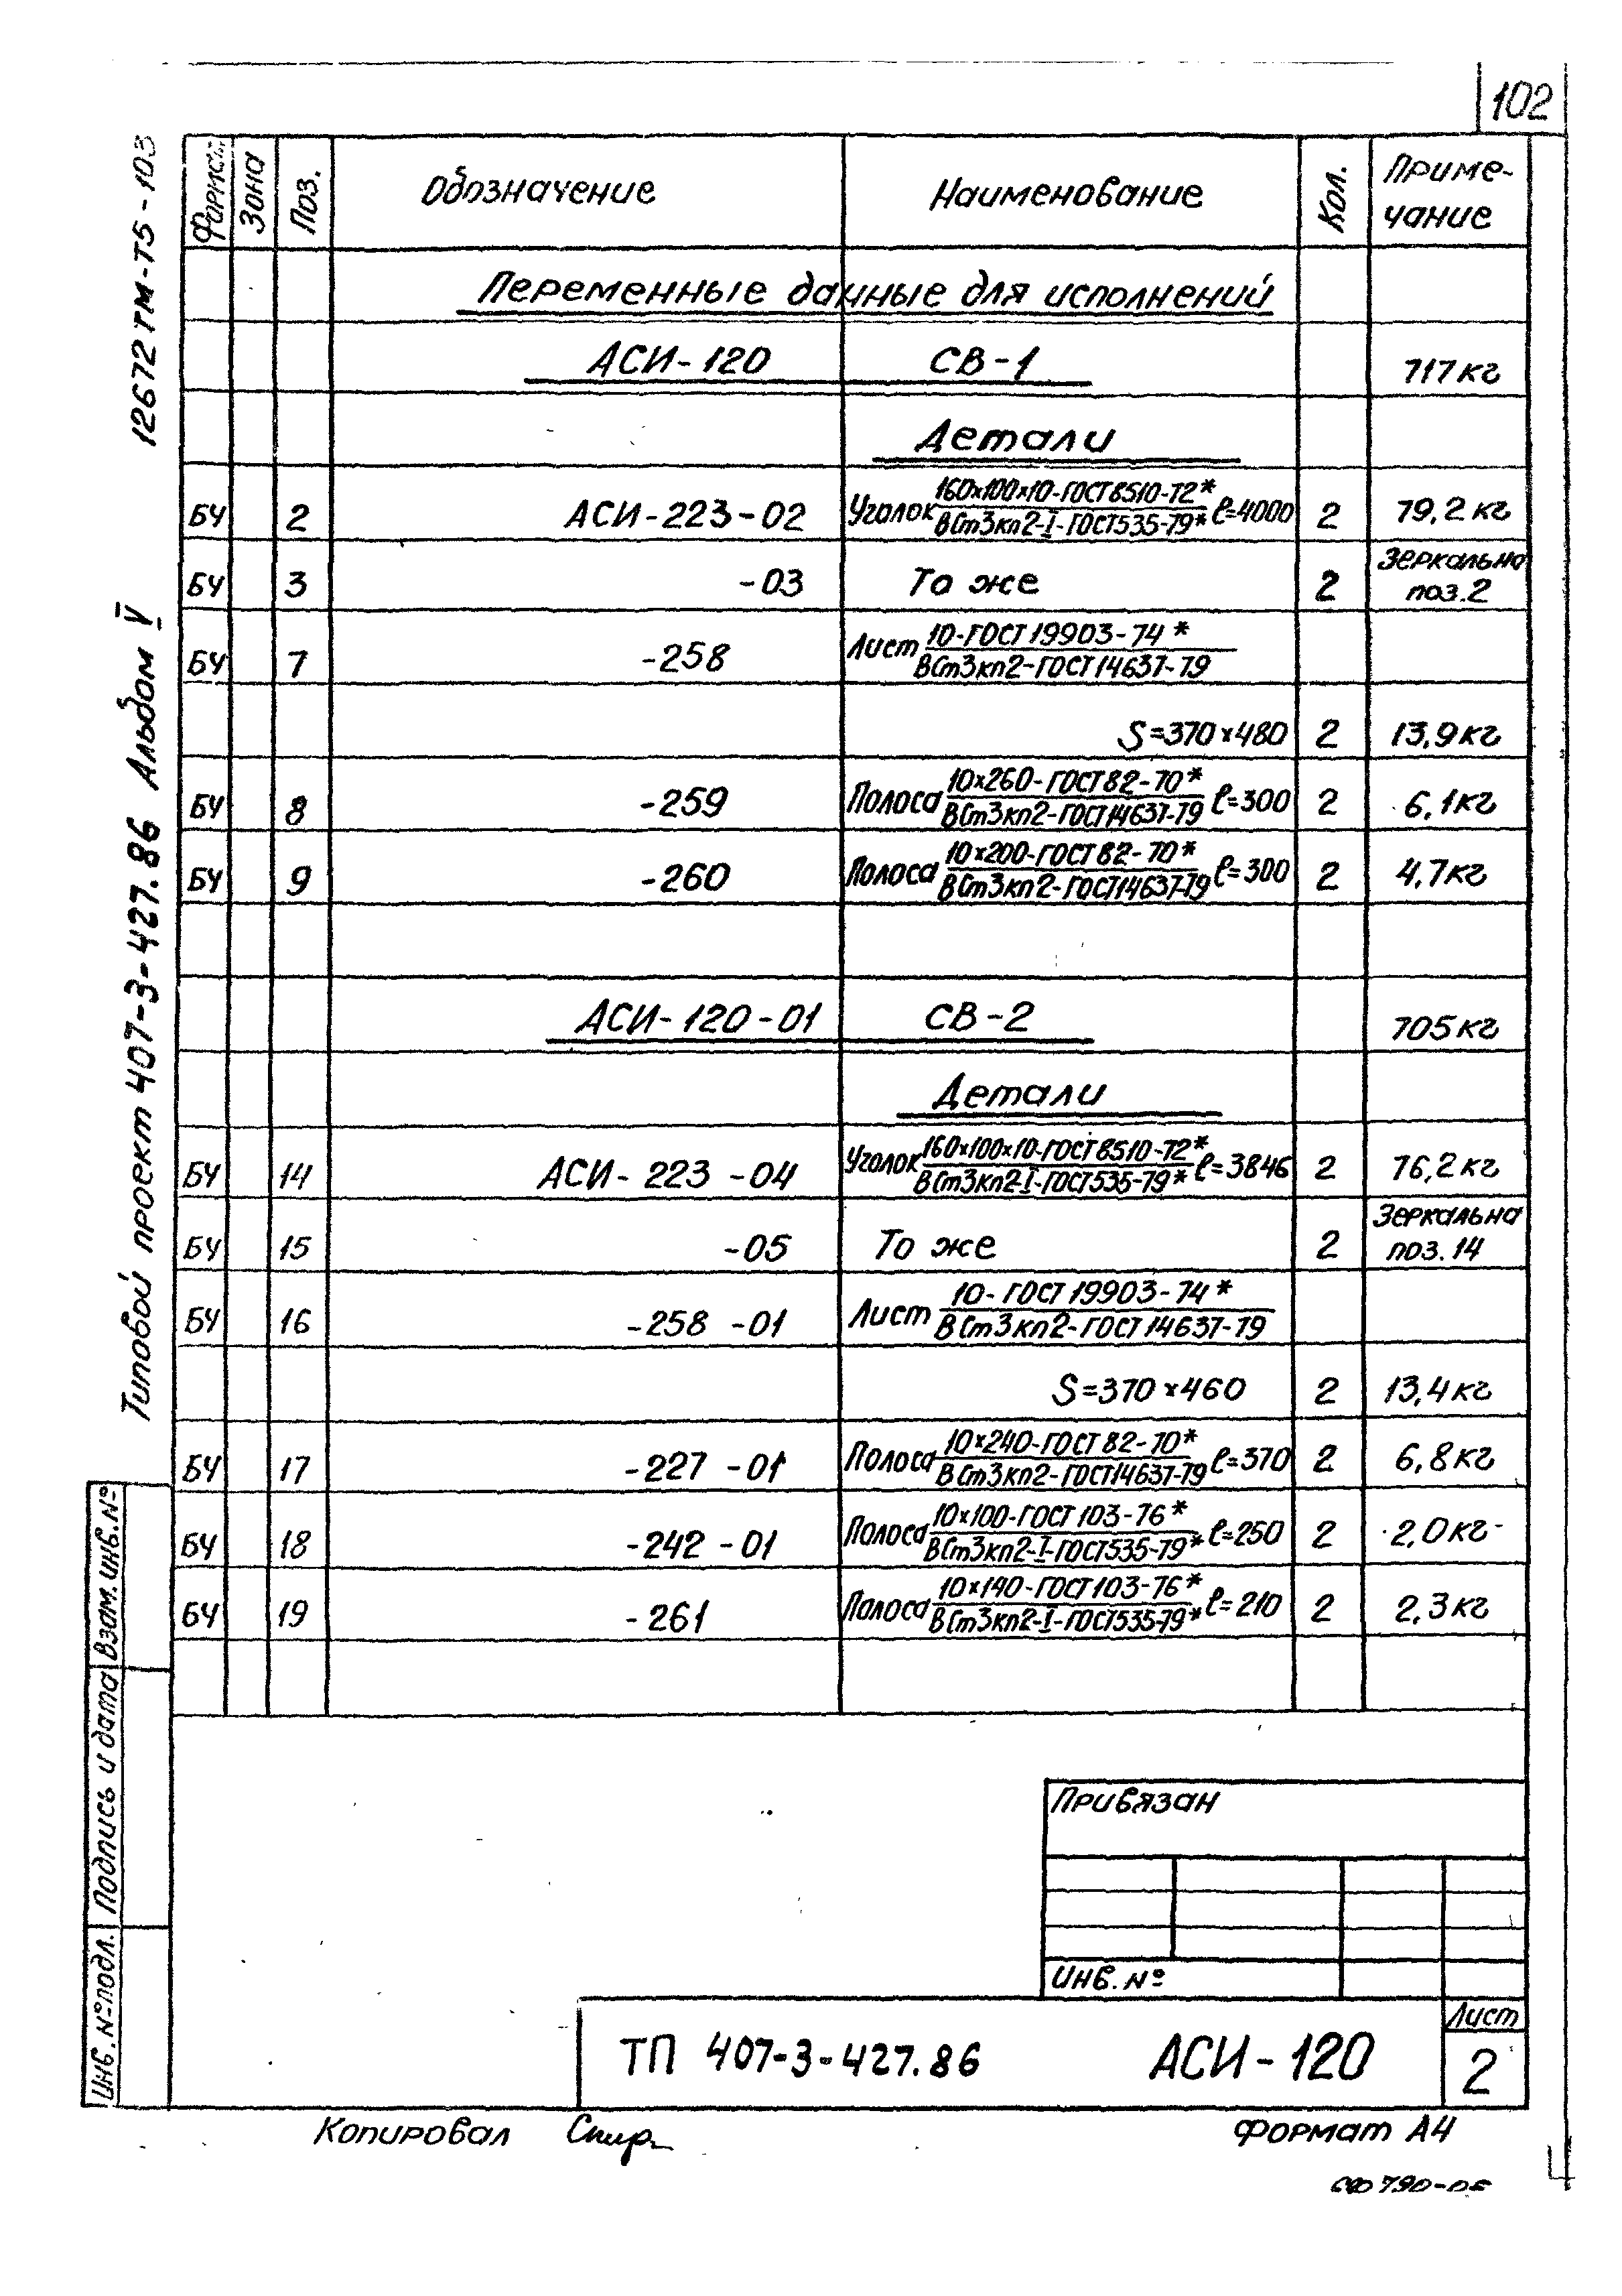 102
Формат Зона Поз. Обозначение Наименование Кол. Приме-
чание
Переменные данные для исполнений
АСИ-120 СВ-1 717кг
Детали
БЧ 2 АСИ-223-02 Уголок 160х100х10-ГОСТ8510-72* / ВСт3кп2-I-ГОСТ535-79* ℓ=4000 2 79,2кг
БЧ 3 -03 То же 2 Зеркально
поз.2
БЧ 7 -258 Лист 10-ГОСТ19903-74* / ВСт3кп2-ГОСТ14637-79
S=370х480 2 13,9кг
БЧ 8 -259 Полоса 10х260-ГОСТ82-70* / ВСт3кп2-ГОСТ14637-79 ℓ=300 2 6,1кг
БЧ 9 -260 Полоса 10х200-ГОСТ82-70* / ВСт3кп2-ГОСТ14637-79 ℓ=300 2 4,7кг
АСИ-120-01 СВ-2 705кг
Детали
БЧ 14 АСИ-223-04 Уголок 160х100х10-ГОСТ8510-72* / ВСт3кп2-I-ГОСТ535-79* ℓ=3846 2 76,2кг
БЧ 15 -05 То же 2 Зеркально
поз.14
БЧ 16 -258-01 Лист 10-ГОСТ19903-74* / ВСт3кп2-ГОСТ14637-79
S=370х460 2 13,4кг
БЧ 17 -227-01 Полоса 10х240-ГОСТ82-70* / ВСт3кп2-ГОСТ14637-79 ℓ=370 2 6,8кг
БЧ 18 -242-01 Полоса 10х100-ГОСТ103-76* / ВСт3кп2-I-ГОСТ535-79* ℓ=250 2 2,0кг
БЧ 19 -261 Полоса 10х140-ГОСТ103-76* / ВСт3кп2-I-ГОСТ535-79* ℓ=210 2 2,3кг
Типовой проект 407-3-427.86 Альбом V 12672тм-т5-103
Инв.№подл. Подпись и дата Взам.инв.№
Привязан
Инв.№
ТП 407-3-427.86 АСИ-120
Лист
2
Копировал Формат А4